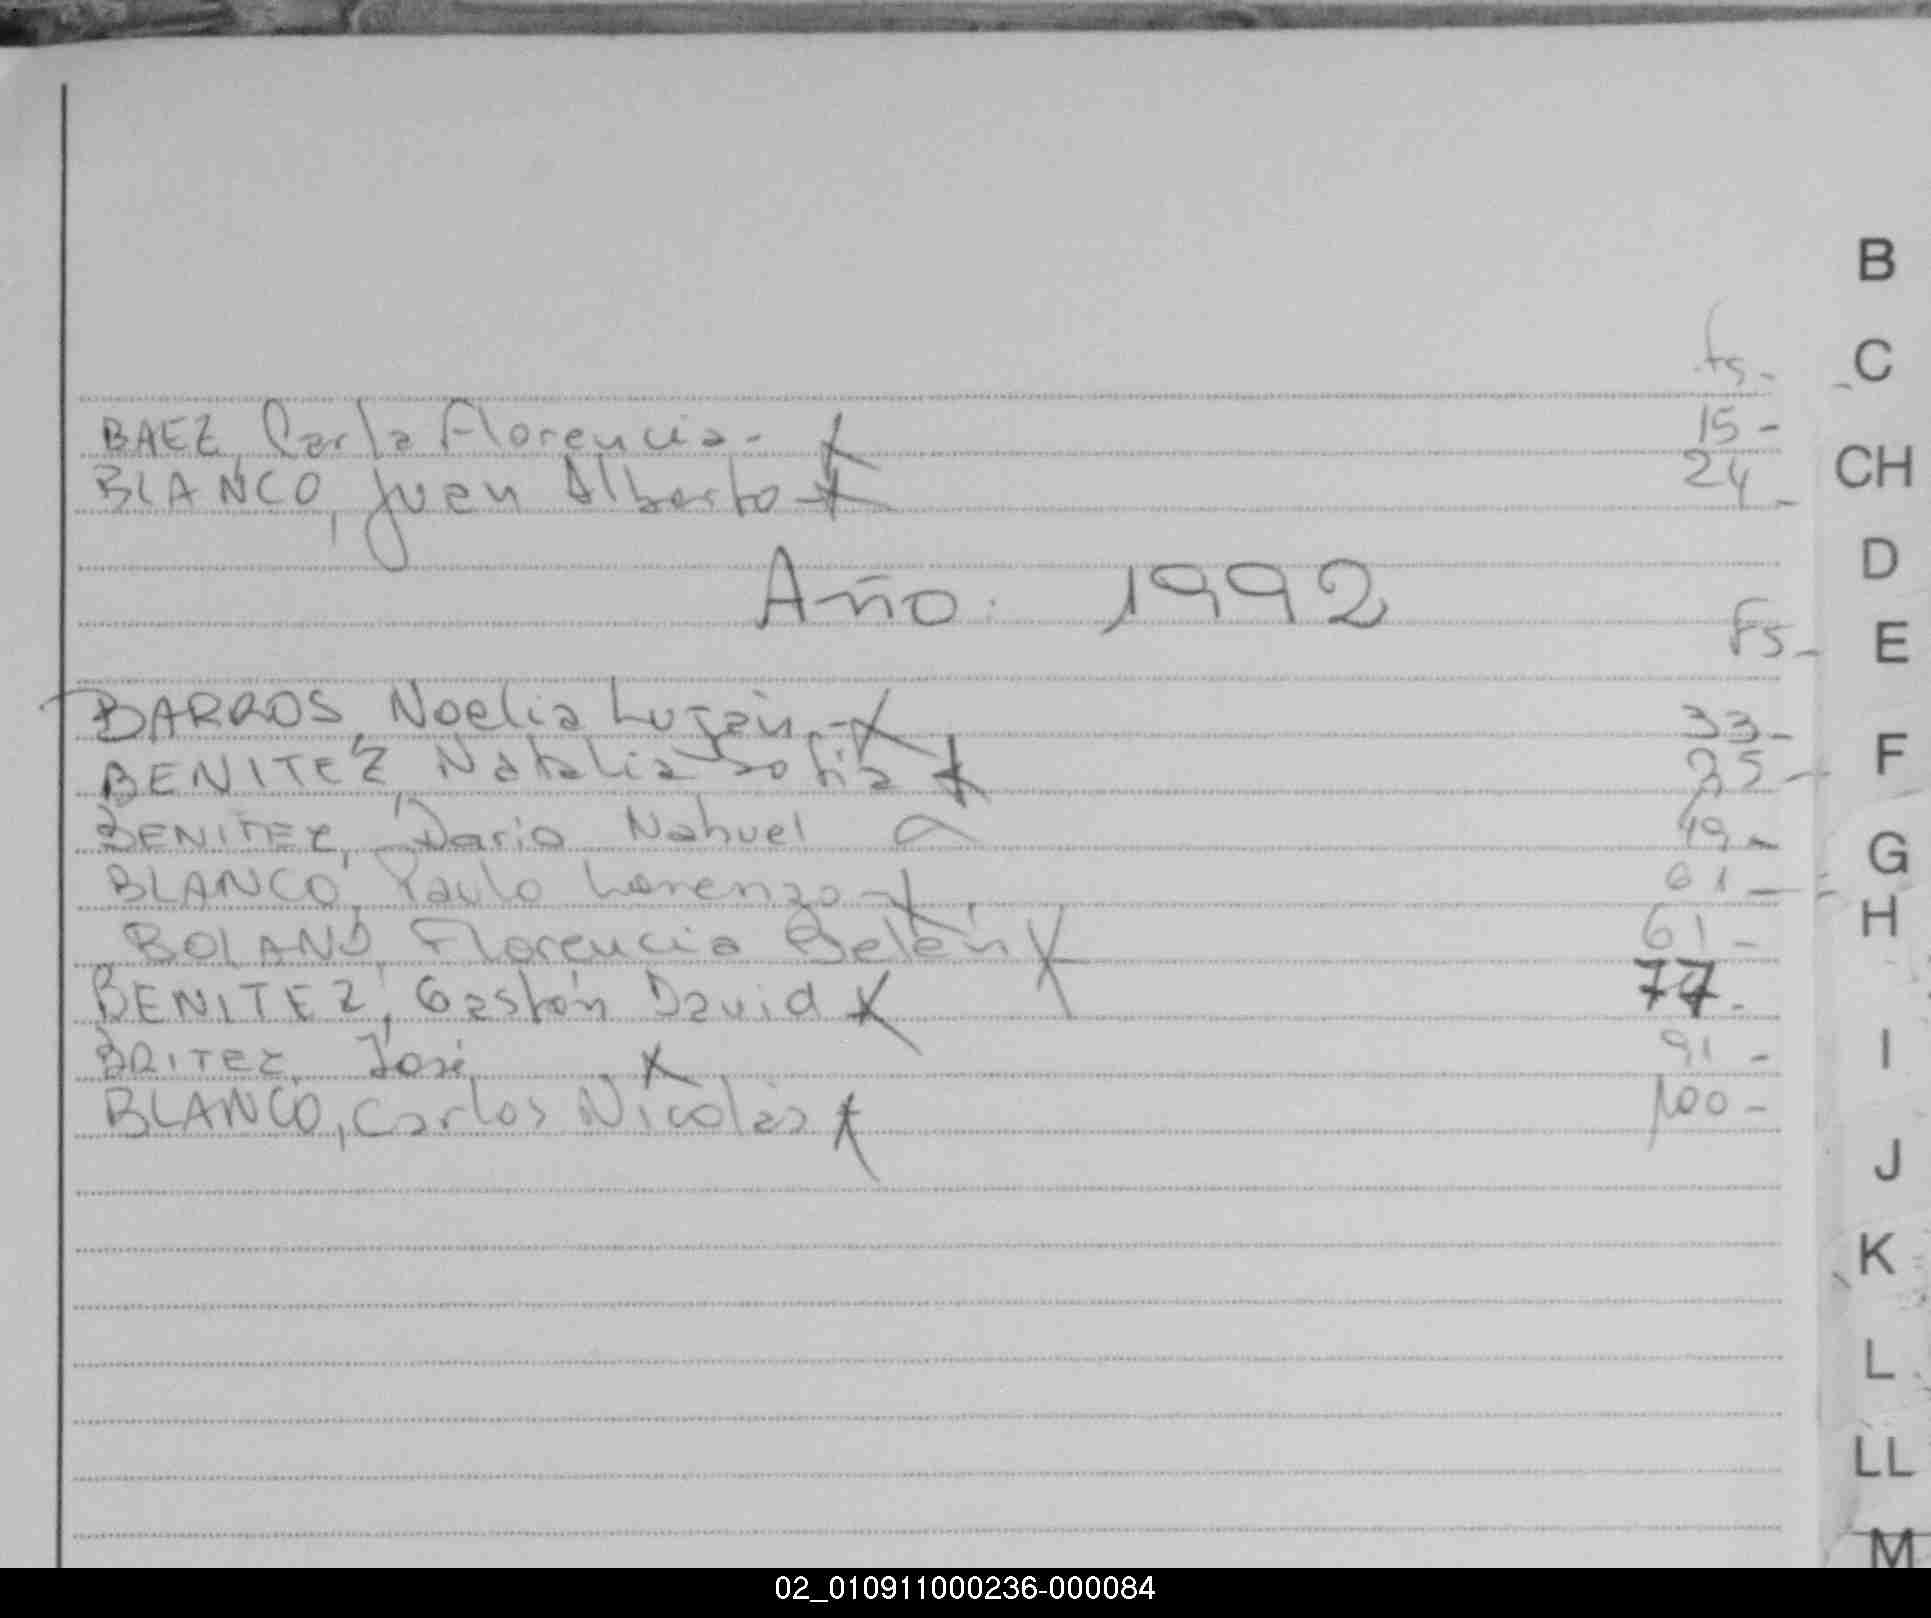 fs-
BAEZ, Carla Florencia- X 15-
BLANCO, Juan Alberto-X 24-
Año. 1992
Fs-
BARROS, Noelia Luján-X 33-
BENITEZ, Natalia Sofia X 25-
BENITEZ, Dario Nahuel 49-
BLANCO, Paulo Lorenzo-X. 61-
BOLAND, Florencia Belén X 61-
BENITEZ, Gastón David X 77-
BRITEZ, José X 91-
BLANCO, Carlos Nicolás X 100-
B
C
CH
D
E
F
G
H
I
J
K
L
LL
M
02_010911000236-000084